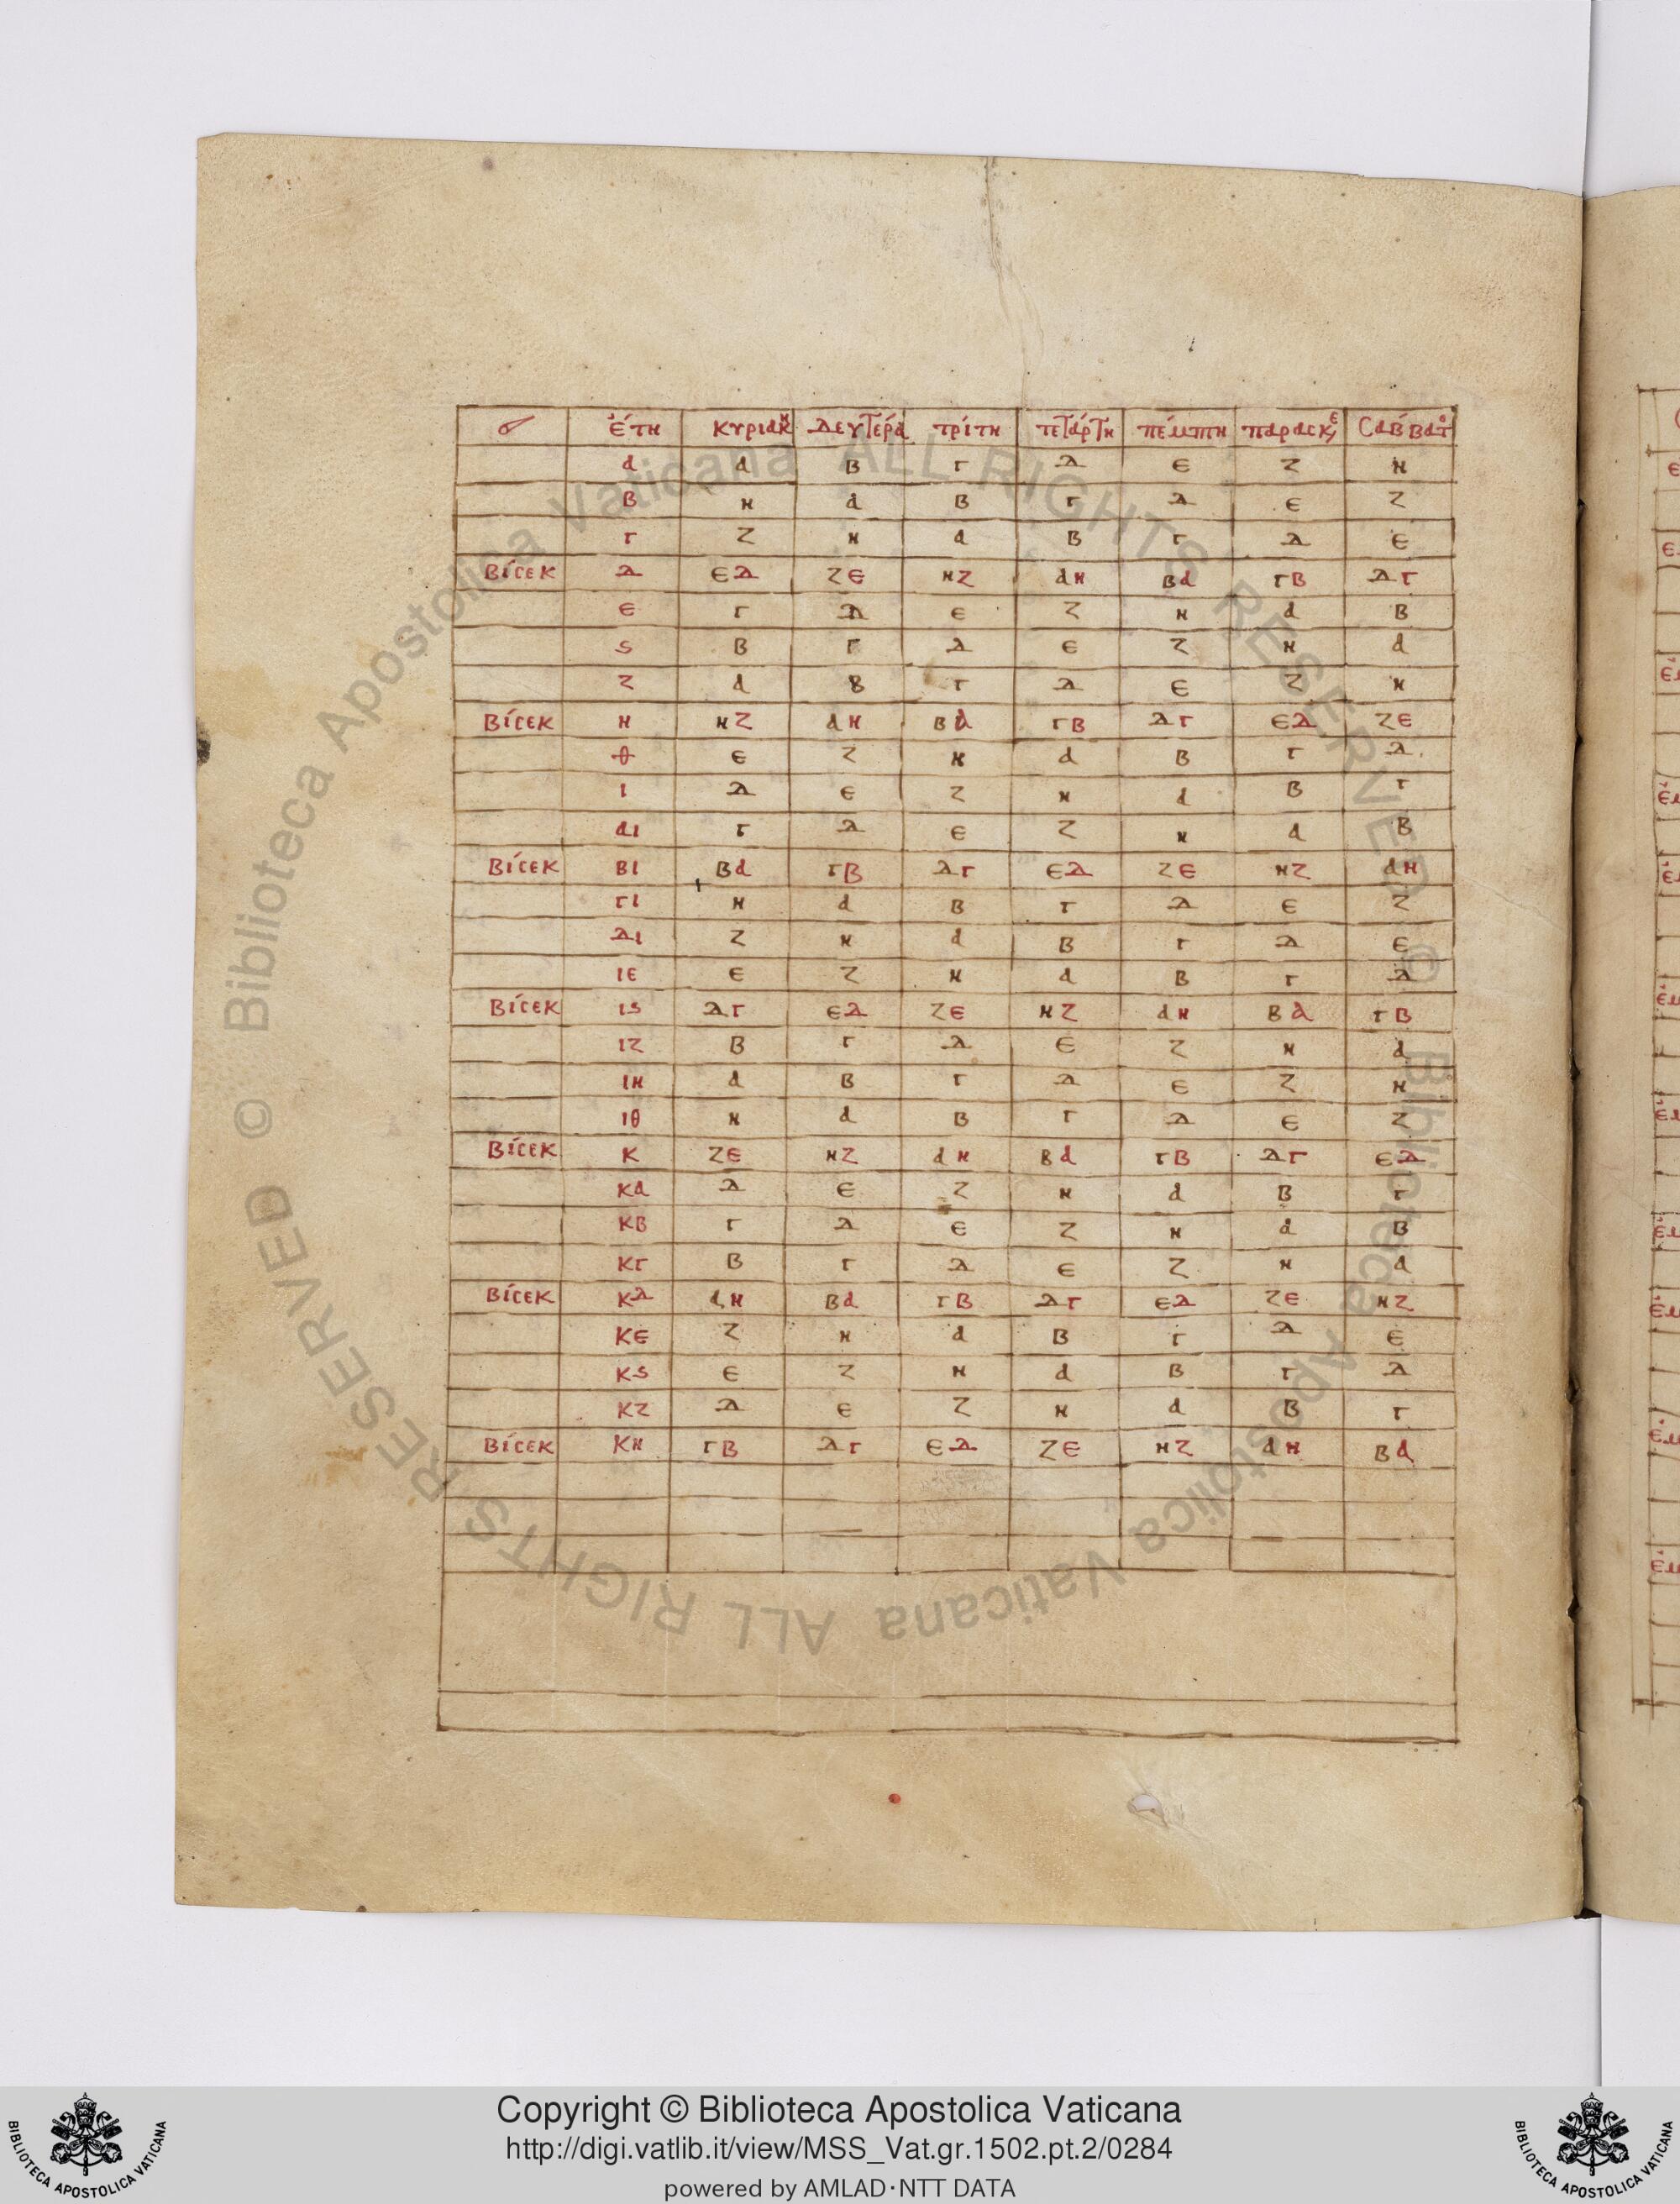 ἔτη κυριακη δευτέρα τρίτη τετάρτη πέμπτη παρασκε Σάββατο
α α β γ δ ε ζ η
β η α β γ δ ε ζ
γ ζ η α β γ δ ε
βίσεκ δ εδ ζε ηζ αη βα γβ δγ
ε γ δ ε ζ η α β
ϛ β γ δ ε ζ η α
ζ α β γ δ ε ζ η
βίσεκ η ηζ αη βα γβ δγ εδ ζε
θ ε ζ η α β γ δ
ι δ ε ζ η α β γ
αι γ δ ε ζ η α β
βίσεκ βι βα γβ δγ εδ ζε ηζ αη
γι η α β γ δ ε ζ
δι ζ η α β γ δ ε
ιε ε ζ η α β γ δ
βίσεκ ιϛ δγ εδ ζε ηζ αη βα γβ
ιζ β γ δ ε ζ η α
ιη α β γ δ ε ζ η
ιθ η α β γ δ ε ζ
βίσεκ κ ζε ηζ αη βα γβ δγ εδ
κα δ ε ζ η α β γ
κβ γ δ ε ζ η α β
κγ β γ δ ε ζ η α
βίσεκ κδ αη βα γβ δγ εδ ζε ηζ
κε ζ η α β γ δ ε
κϛ ε ζ η α β γ δ
κζ δ ε ζ η α β γ
βίσεκ κη γβ δγ εδ ζε ηζ αη βα
© Biblioteca Apostolica Vaticana ALL RIGHTS RESERVED
© Biblioteca Apostolica Vaticana ALL RIGHTS RESERVED
Copyright © Biblioteca Apostolica Vaticana
http://digi.vatlib.it/view/MSS_Vat.gr.1502.pt.2/0284
powered by AMLAD·NTT DATA
BIBLIOTECA APOSTOLICA VATICANA
BIBLIOTECA APOSTOLICA VATICANA